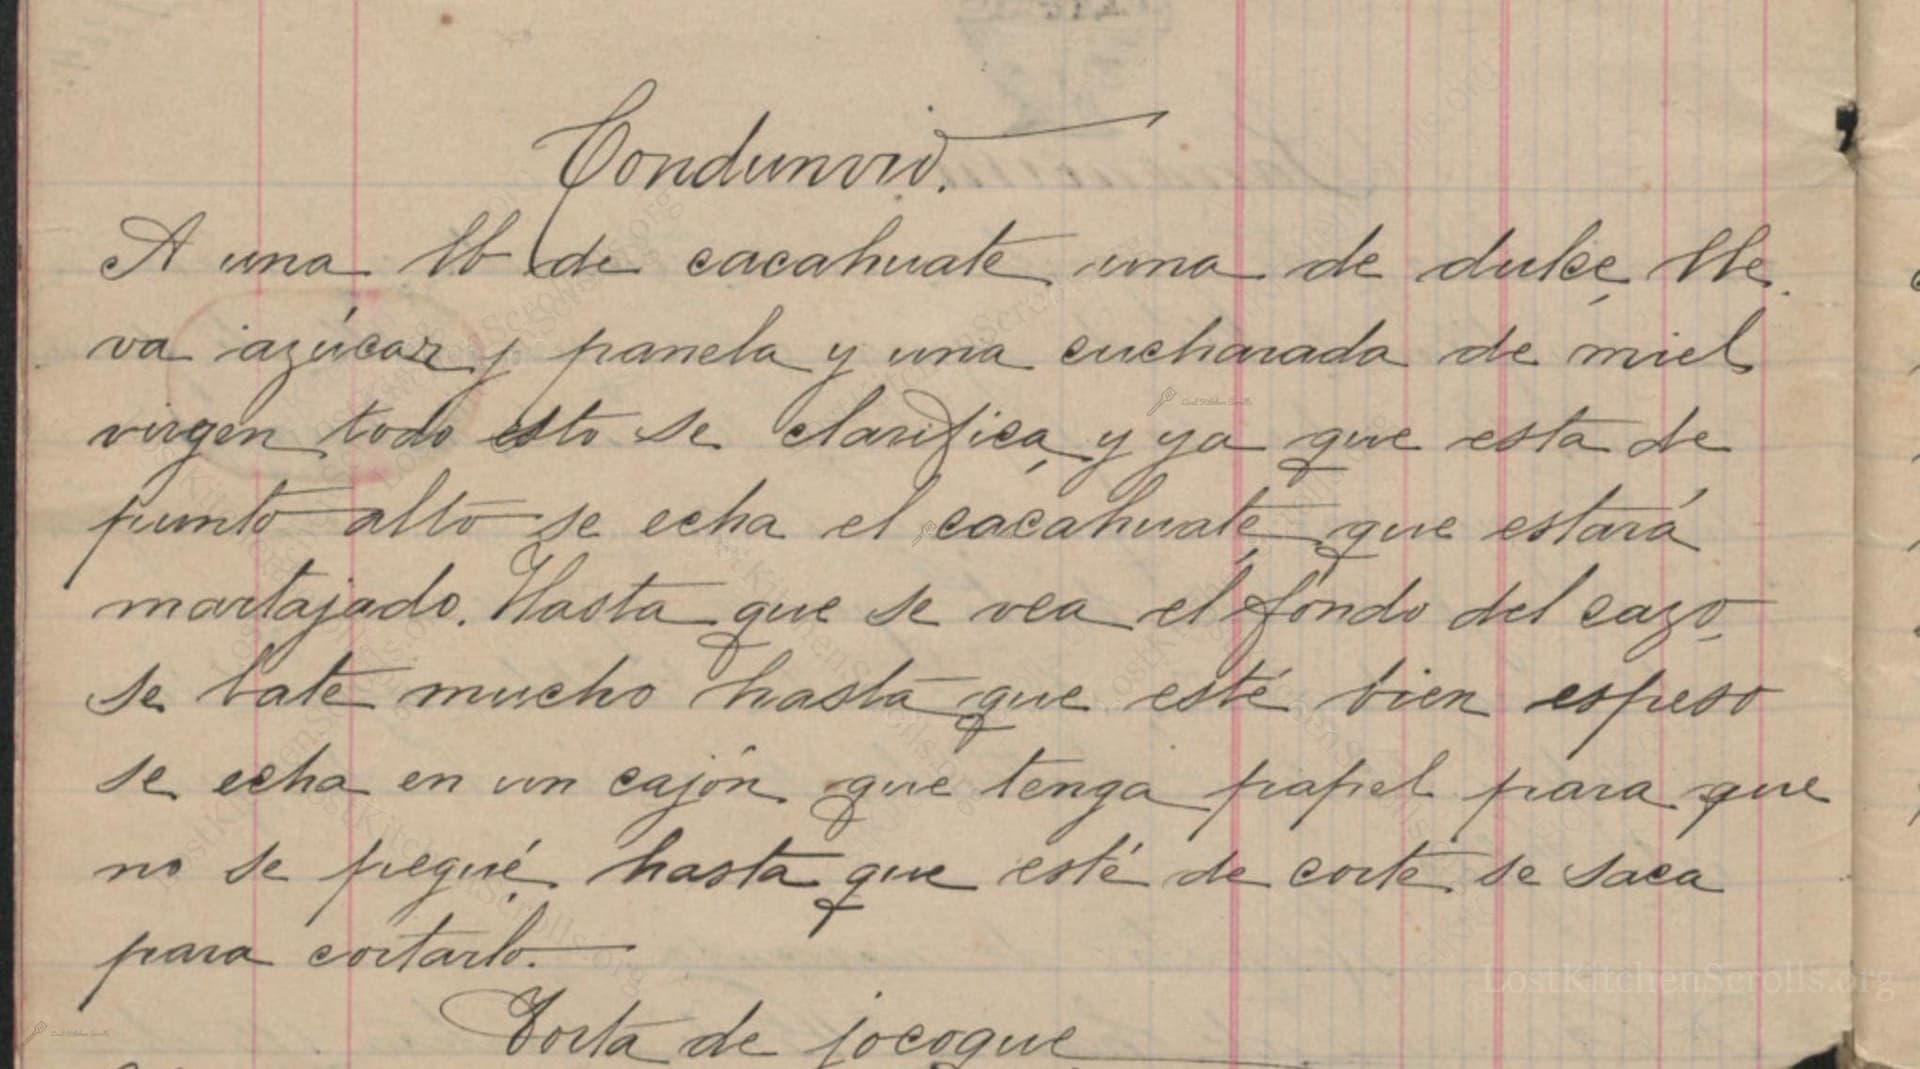 Condunvio.
A una lb de cacahuate una de dulce, lle.
va azúcar y panela y una cucharada de miel
virgen todo esto se clarifica, y ya que esta de
punto alto se echa el cacahuate, que estará
martajado. Hasta que se vea el fondo del cazo,
se bate mucho hasta que esté bien espeso
se echa en un cajón que tenga papel para que
no se pegué, hasta que esté de corte se saca
para cortarlo.
Torta de jocoque
LostKitchenScrolls.org